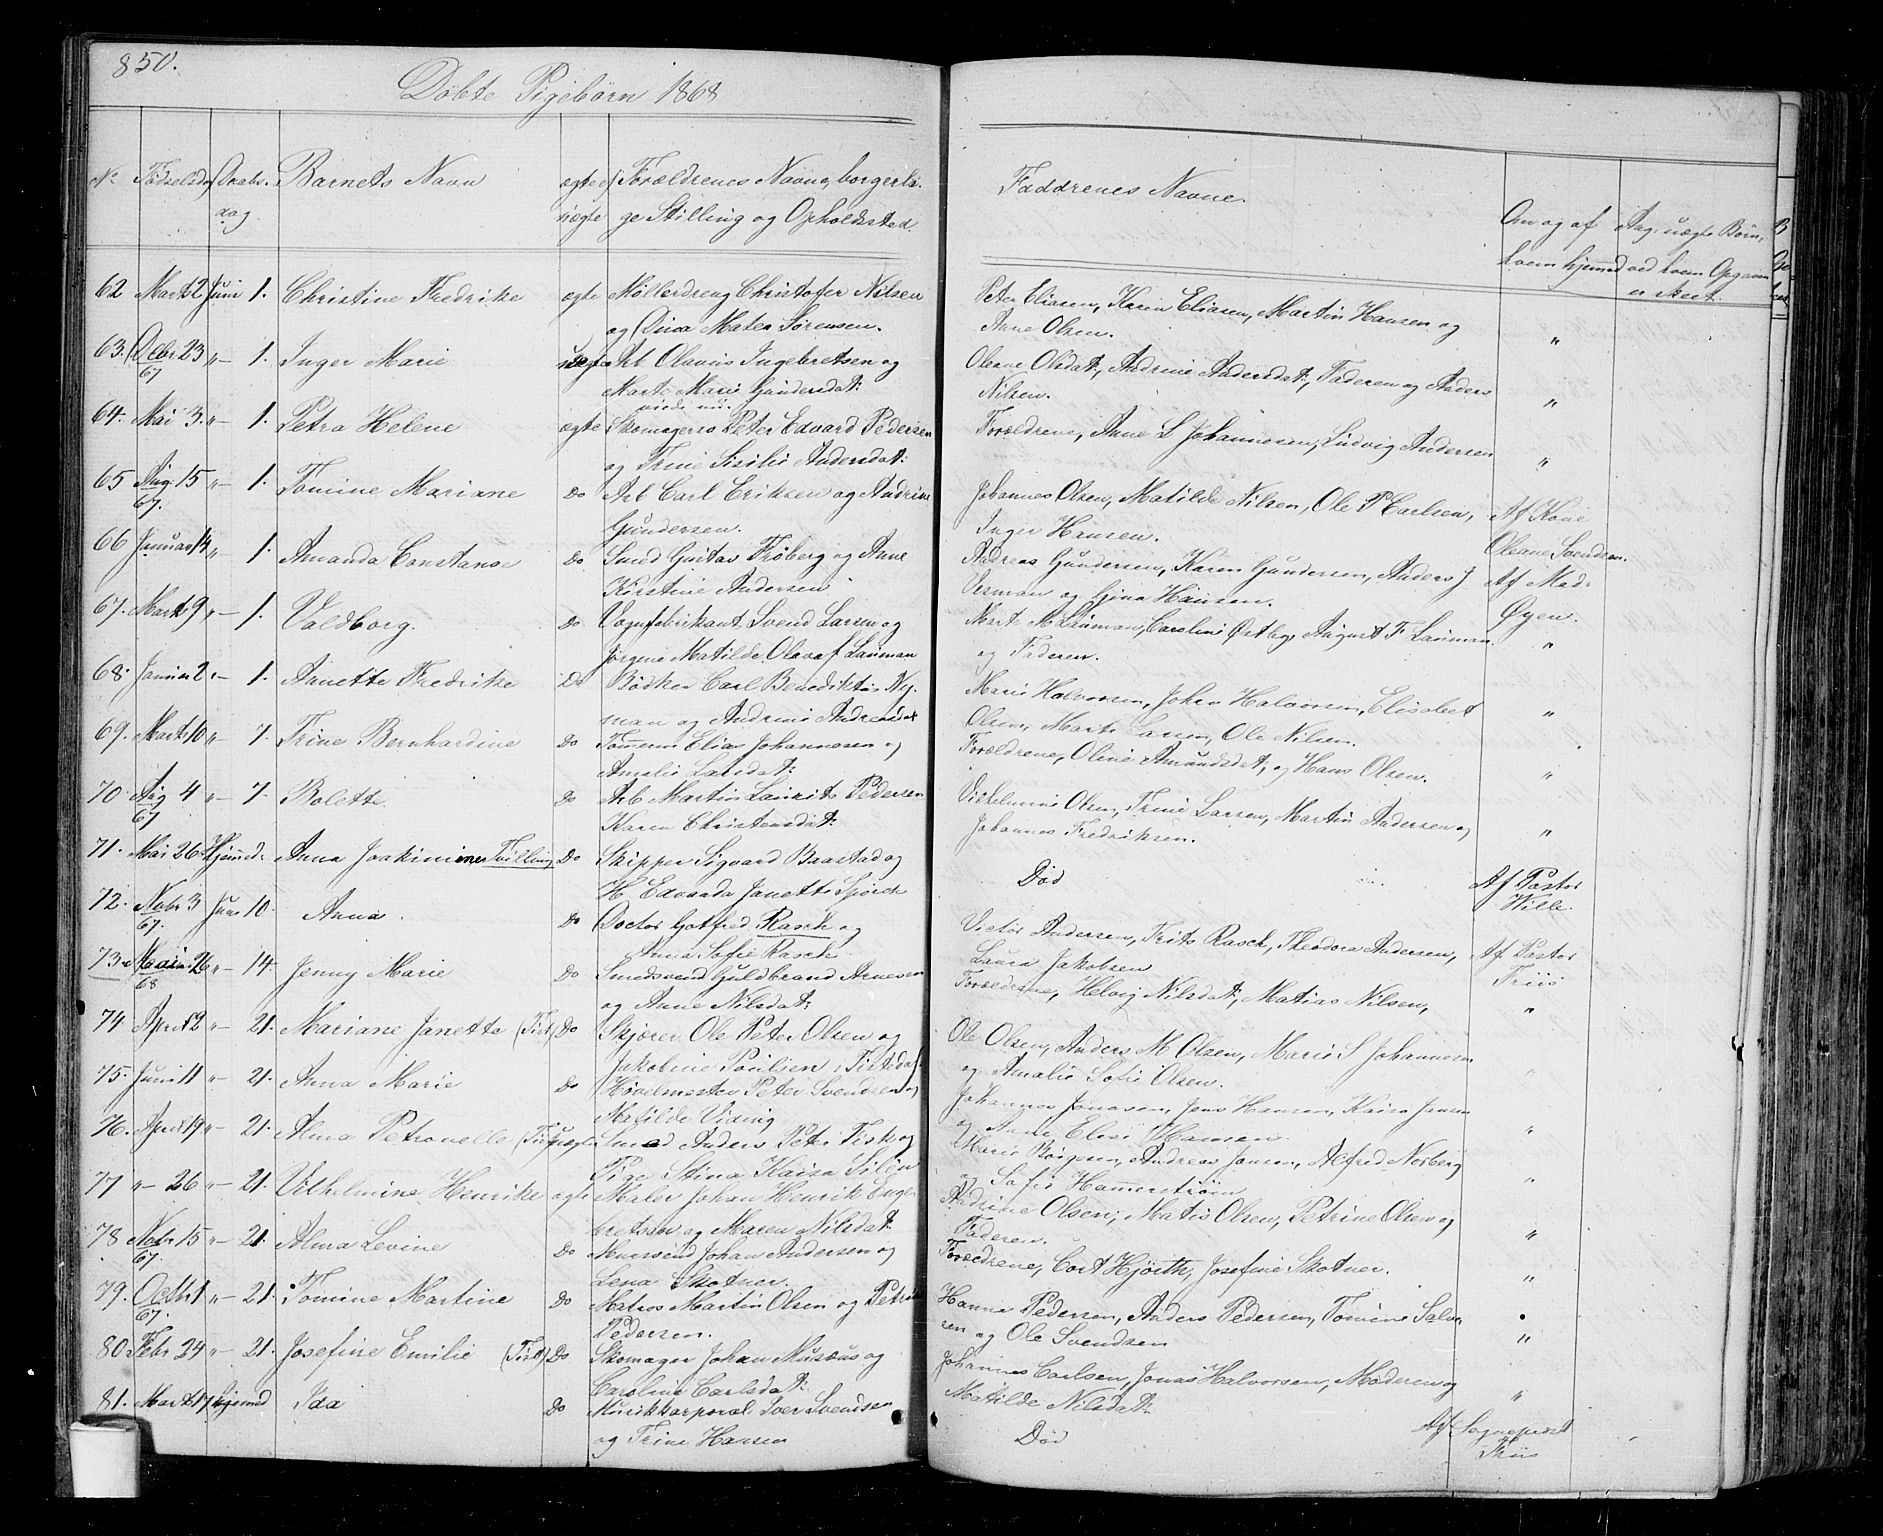 850.
Döbte Pigebörn 1868
No Födselsdag Daabsdag Barnets Navn ægte el uægte Forældrenes Navn, borgerlige Stilling og Opholdssted.
Faddrenes Navne.
Om og af hvem hjemmed Ang. uægte Börn, ved hvem Opgaven er skeet.
62 Marts 2 Juni 1. Christine Fredrike ægte Möllerdreng Christofer Nilsen
og Dina Matea Sörensen.
Peter Eliasen, Karen Eliasen, Martin Hansen og
Ane Olsen. "
63. Decbr 23 67 "– 1. Inger Marie uægte Arb Olavus Ingebretsen og
Marte Marie Gundersdat:
Olerne Olsdat, Andrine Andersdat, Faderen og Anders
Nilsen. "
64. Mai 3. "– 1. Petra Helene ægte Skomagersv Peter Edvard Pedersen
og Trine Sisilie Andersdat:
Forældrene, Anne L Johannesen, Ludvig Andersen "
65 Aug. 15 67. "– 1. Tomine Mariane Do Arb Carl Eriksen og Andrine
Gundersen.
Johannes Olsen, Matilde Nilsen, Ole P Carlsen,
Inger Hansen. Af Kone
Oleane Svendsen.
66 Januar 14 "– 1. Amanda Constanse Do Smed Gustav Fröberg og Anne
Kirstine Andersen
Andreas Gundersen, Karen Gundersen, Anders J
Vesman og Gina Hansen. Af Mad.
Öyen.
67. Marts 9 "– 1. Valdborg. Do Vognfabrikant Svend Larsen og
Jörgine Matilde Olava f Lauman
Marte M Lauman, Caroline Östby, August F Lauman
og Faderen. "
68. Januar 2 "– 1. Anette Fredrike Do Bödker Carl Benediktus Nyman
og Andrine Andersdat
Marie Halvorsen, Johan Halvorsen, Elisabet
Olsen, Marte Larsen, Ole Nilsen. "
69. Marts 10 "– 7. Trine Bernhardine Do Tömerm Elias Johannesen og
Amalie Larsdat:
Forældrene, Oline Amundsdat, og Hans Olsen. "
70. Aug 4 67 "– 7. Bolette Do Arb Martin Laurits Pedersen
Karen Christensdat:
Vilhelmine Olsen, Trine Larsen, Martin Andersen og
Johannes Fredriksen. "
71. Mai 26 Hjemmed. Anna Joakimine Tvilling Do Skipper Sigvard Baastad og
H Edvarda Janette
Död Af Pastor
Wille.
72. Novbr 3 67. Juni 10. Anna. Do Doctor Gotfred Rasch og
Anna Sofie Rasch
Victor Andersen, Frits Rasch, Theodora Andersen,
Laura Jakobsen Af Pastor
Friis
73. 26 68 "– 14. Jenny Marie Do Smedsvend Guldbrand Arnesen
og Anne Nilsdat:
Forældrene, Helvig Nilsdat, Matias Nilsen, "
74 April 2 "– 21. Mariane Janette (Tist) Do Skjærer Ole Peter Olsen og
Jakobine Poulsen, Tistedal.
Ole Olsen, Anders M Olsen, Marie S Johannesen
og Amalie Sofie Olsen.
75. Juni 11 "– 21. Anna Marie Do Hövelmester Peter Svendsen og
Matilde Viding
Johannes Jonasen, Jens Hansen, Kaisa Jansen
og Ane Elise Hansen. "
76. April 19 "– 21. Alma Petronelle (Tist) uægte Smed Anders Peter Fisk og
Pige Stina Kaisa Silén
Marie Börgesen, Andreas Jonsen, Alfred Norberg
og Sofie Hamerström "
77 "– 26 "– 21. Vilhelmine Henrike ægte Maler Johan Henrik Engebretsen
og Maren Nilsdat:
Andrine Olsen, Matis Olsen, Petrine Olsen og
Faderen. "
78 Novbr 15 67. "– 21. Alma Levine Do Muursvend Johan Andersen og
Lena Skotner.
Forældrene, Cort Hjorth, Josefine Skotner. "
79. Octbr 1 67. "– 21. Tomine Martine Do Matros Martin Olsen og Petrine
Pedersen.
Hanna Pedersen, Anders Pedersen, Tomine Salvesen
og Ole Svendsen "
80 Febr 24 "– 21. Josefine Emilie (Tist) Do Skomager Johan Musæus og
Caroline Carlsdat:
Johannes Carlsen, Jonas Halvorsen, Moderen og
Matilde Nilsdat. "
81. Marts 17 hjemmd Ida Do Musikkorporal Iver Svendsen
og Trine Hansen
Död Af Sognepræst
Friis